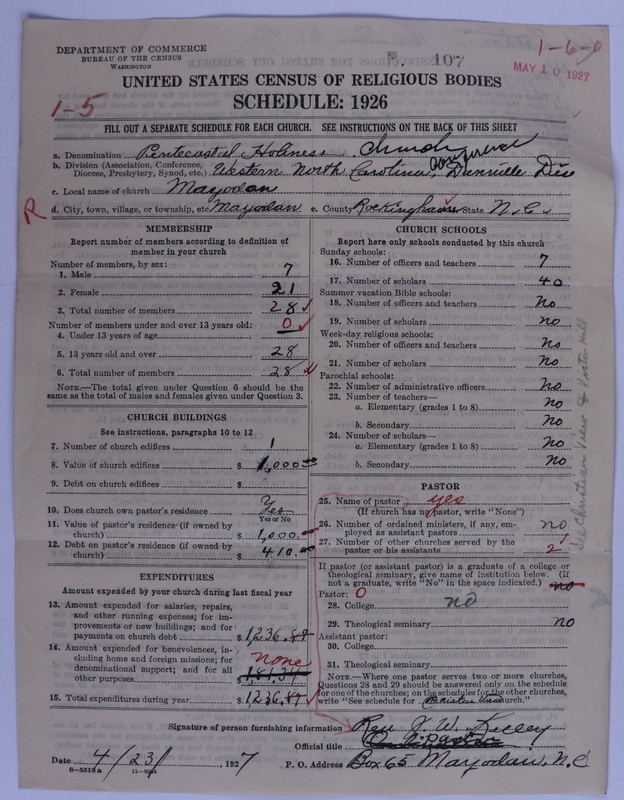 DEPARTMENT OF COMMERCE
BUREAU OF THE CENSUS
WASHINGTON
107
1-6-0
MAY 10 1927
UNITED STATES CENSUS OF RELIGIOUS BODIES
1-5
SCHEDULE: 1926
FILL OUT A SEPARATE SCHEDULE FOR EACH CHURCH. SEE INSTRUCTIONS ON THE BACK OF THIS SHEET
a. Denomination Pentecostal Holiness Church
b. Division (Association, Conference, Diocese, Presbytery, Synod, etc.) Western North Carolina Conference, Danville Dis
c. Local name of church Mayodan
R
d. City, town, village, or township, etc. Mayodan e. County Rockingham State N.C.
MEMBERSHIP
Report number of members according to definition of
member in your church
Number of members, by sex:
1. Male 7
2. Female 21
3. Total number of members 28
Number of members under and over 13 years old:
4. Under 13 years of age 0
5. 13 years old and over 28
6. Total number of members 28
NOTE.—The total given under Question 6 should be the
same as the total of males and females given under Question 3.
CHURCH BUILDINGS
See instructions, paragraphs 10 to 12
7. Number of church edifices 1
8. Value of church edifices $ 1,000.00
9. Debt on church edifices $
10. Does church own pastor's residence Yes
Yes or No
11. Value of pastor's residence (if owned by
church) $ 1,000.00
12. Debt on pastor's residence (if owned by
church) $ 410.00
EXPENDITURES
Amount expended by your church during last fiscal year
13. Amount expended for salaries, repairs,
and other running expenses; for im-
provements or new buildings; and for
payments on church debt $ 1,236.87
14. Amount expended for benevolences, in-
cluding home and foreign missions; for none
denominational support; and for all
other purposes $
15. Total expenditures during year $ 1236.87
CHURCH SCHOOLS
Report here only schools conducted by this church
Sunday schools:
16. Number of officers and teachers 7
17. Number of scholars 40
Summer vacation Bible schools:
18. Number of officers and teachers No
19. Number of scholars no
Week-day religious schools:
20. Number of officers and teachers No
21. Number of scholars No
Parochial schools:
22. Number of administrative officers No
23. Number of teachers—
a. Elementary (grades 1 to 8) No
b. Secondary No
24. Number of scholars—
a. Elementary (grades 1 to 8) No
b. Secondary No
PASTOR
25. Name of pastor yes
(If church has no pastor, write "None")
26. Number of ordained ministers, if any, em-
ployed as assistant pastors no
27. Number of other churches served by the
pastor or his assistants 2
If pastor (or assistant pastor) is a graduate of a college or
theological seminary, give name of institution below. (If
not a graduate, write "No" in the space indicated.) no
Pastor: 0
28. College no
29. Theological seminary no
Assistant pastor:
30. College
31. Theological seminary
NOTE.—Where one pastor serves two or more churches,
Questions 28 and 29 should be answered only on the schedule
for one of the churches; on the schedules for the other churches,
write "See schedule for Christian View church."
See Christian View &
Signature of person furnishing information Rev J. W. Kelley
Official title Pastor
Date 4/23/ 1927 P. O. Address Box 65 Mayodan, N.C
8-5518a 11-9094